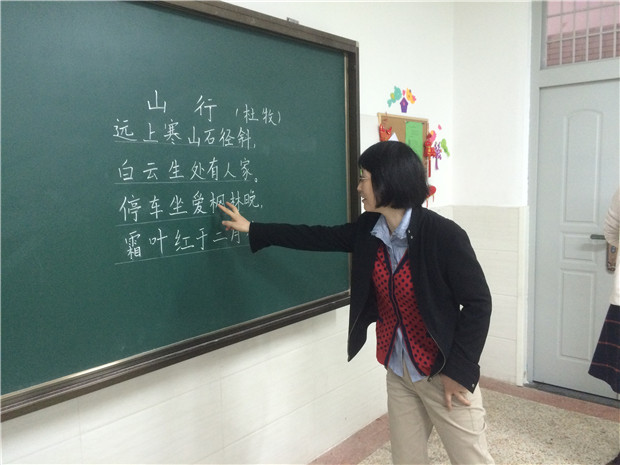 山行(杜牧)
远上寒山石径斜,
白云生处有人家。
停车坐爱枫林晚,
霜叶红于二月